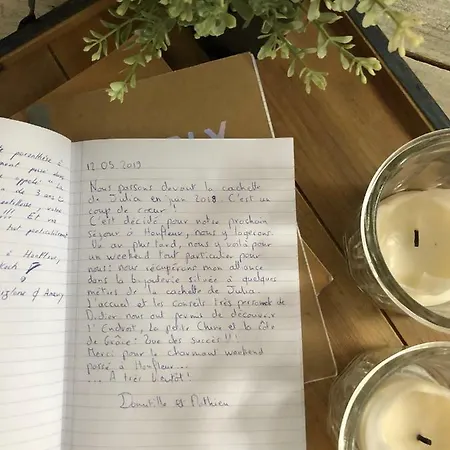 parenthèse à
appelé "La
de 3 ans
!!! Et
tout particulièrement
à Honfleur,
12.05.2019
Nous passons devant la cachette
de Julia en juin 2018. C'est un
coup de cœur.
C'est décidé pour notre prochain
séjour à Honfleur, nous y logerons.
Un an plus tard, nous y voilà pour
un weekend tout particulier pour
nous: nous récupérons mon alliance
dans la bijouterie située à quelques
mètres de la cachette de Julia.
L'accueil et les conseils très personnels de
Didier nous ont permis de découvrir
l'Endroit, la petite Chine et la Côte
de Grâce: Que des succès!!!
Merci pour le charmant weekend
passé à Honfleur...
... A très bientôt!
Domitille et Mathieu